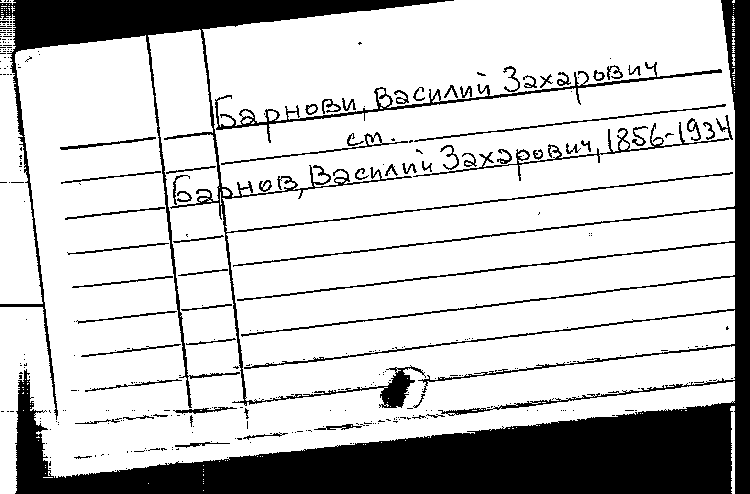 Барнови, Василий Захарович
см.
Барнов, Василий Захарович, 1856-1934